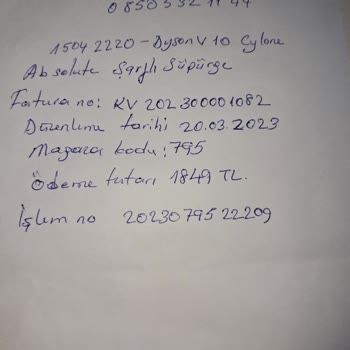 0 850 532 11 44
15042220 - Dyson V10 Cylone
Absolute Şarjlı Süpürge
Fatura no: KV 202300001082
Düzenleme tarihi 20.03.2023
Magaza kodu: 795
Ödeme tutarı 1849 TL.
İşlem no 20230795 22209